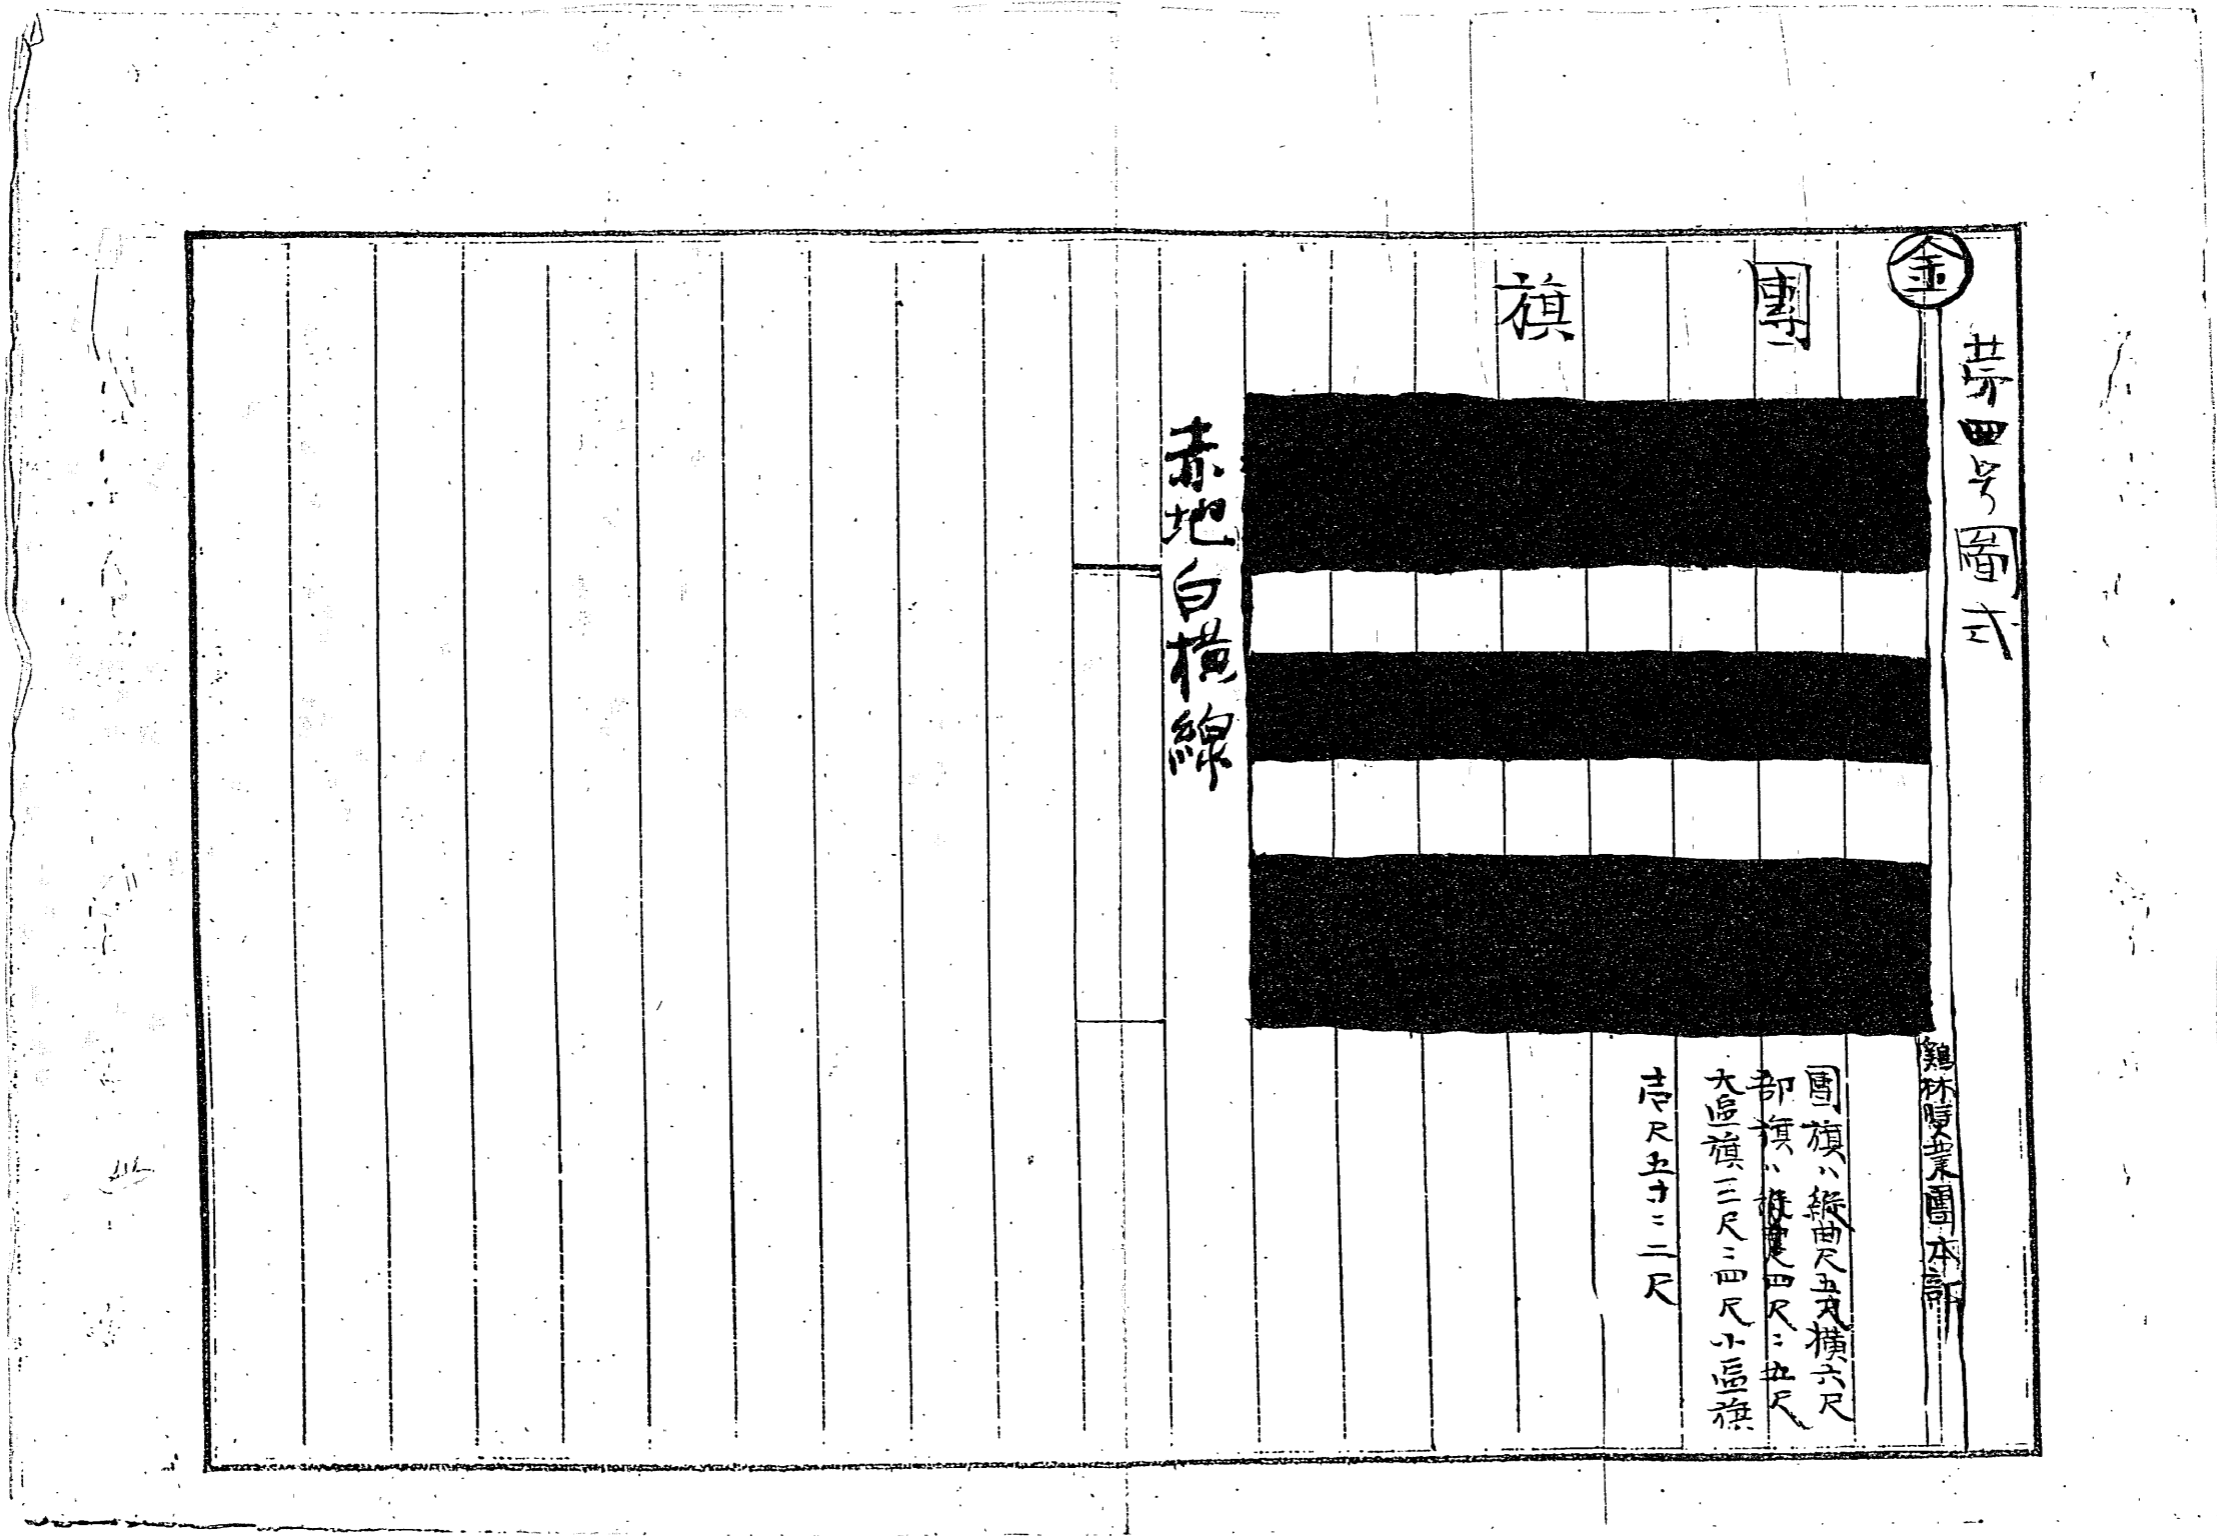 第四号圖式
金
鷄林奬業團本部
團旗
團旗ハ縱曲尺五尺横六尺
部旗ハ四尺ニ五尺
大區旗三尺ニ四尺小區旗
壱尺五寸ニ二尺
赤地白横線